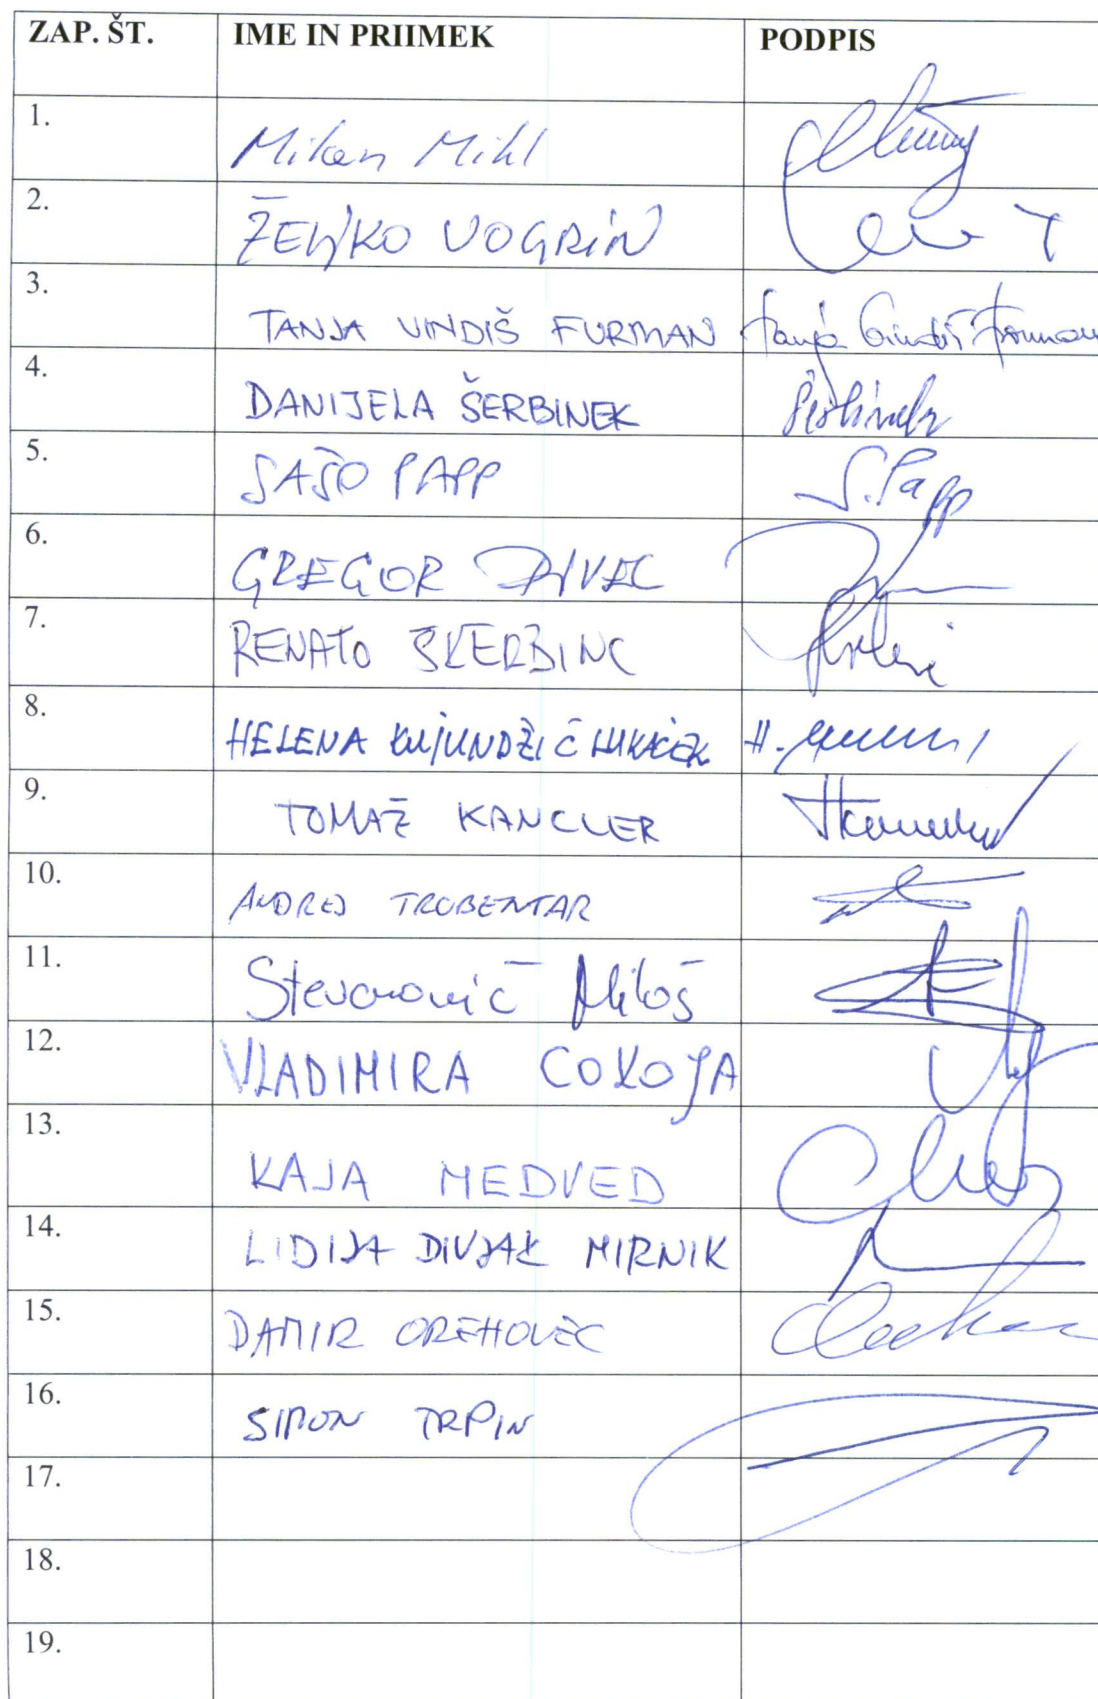 ZAP. ŠT. IME IN PRIIMEK PODPIS
1. Milan Mihl
2. ŽELJKO VOGRIN
3. TANJA VINDIŠ FURMAN Tanja Vindiš Furman
4. DANIJELA ŠERBINEK Šerbinek
5. SAŠO PAPP S. Papp
6. GREGOR PIVEC
7. RENATO ŠKERBINC
8. HELENA KUJUNDŽIĆ LUKAČEK H.
9. TOMAŽ KANCLER
10. ANDREJ TROBENTAR
11. Stevanovič Miloš
12. VLADIMIRA COKOJA
13. KAJA MEDVED
14. LIDIJA DIVJAK MIRNIK
15. DAMIR OREHOVEC
16. SIMON TRPIN
17.
18.
19.